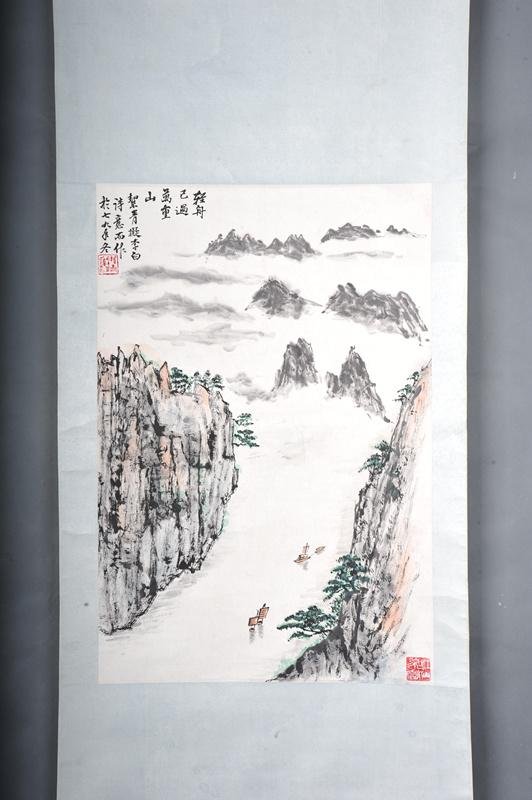 輕舟
已過
萬重
山
絜青擬李白
诗意而作
於七九年冬